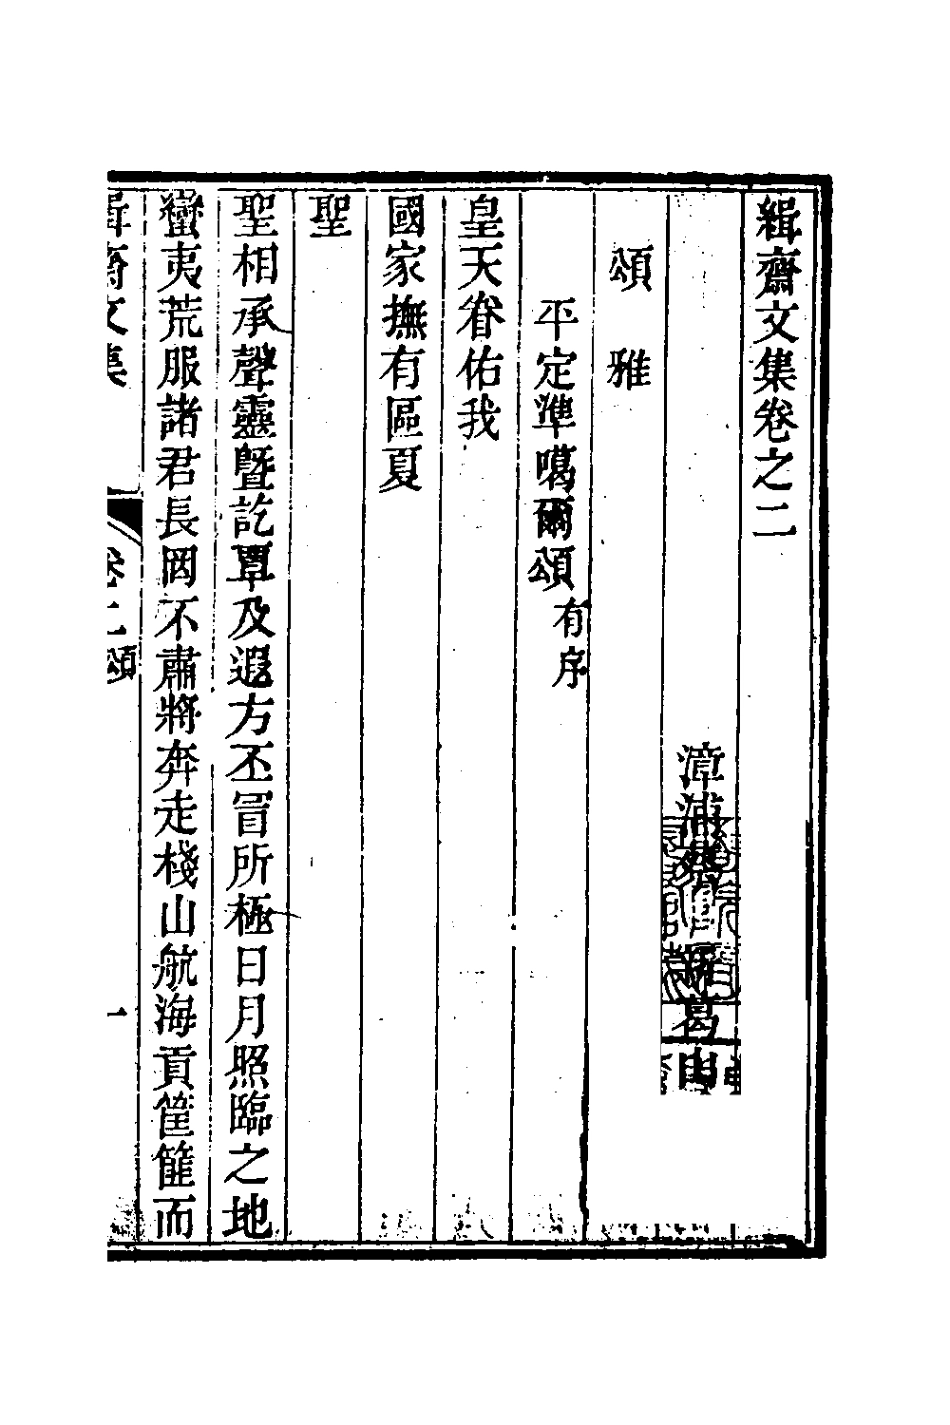 緝齋文集卷之二
漳浦蔡新葛山
頌 雅
平定準噶爾頌有序
皇天眷佑我
國家撫有區夏
聖
聖相承聲靈暨訖覃及遐方丕冐所極日月照臨之地
蠻夷荒服諸君長罔不肅將奔走棧山航海貢筐篚而
緝齋文集 卷二頌 一